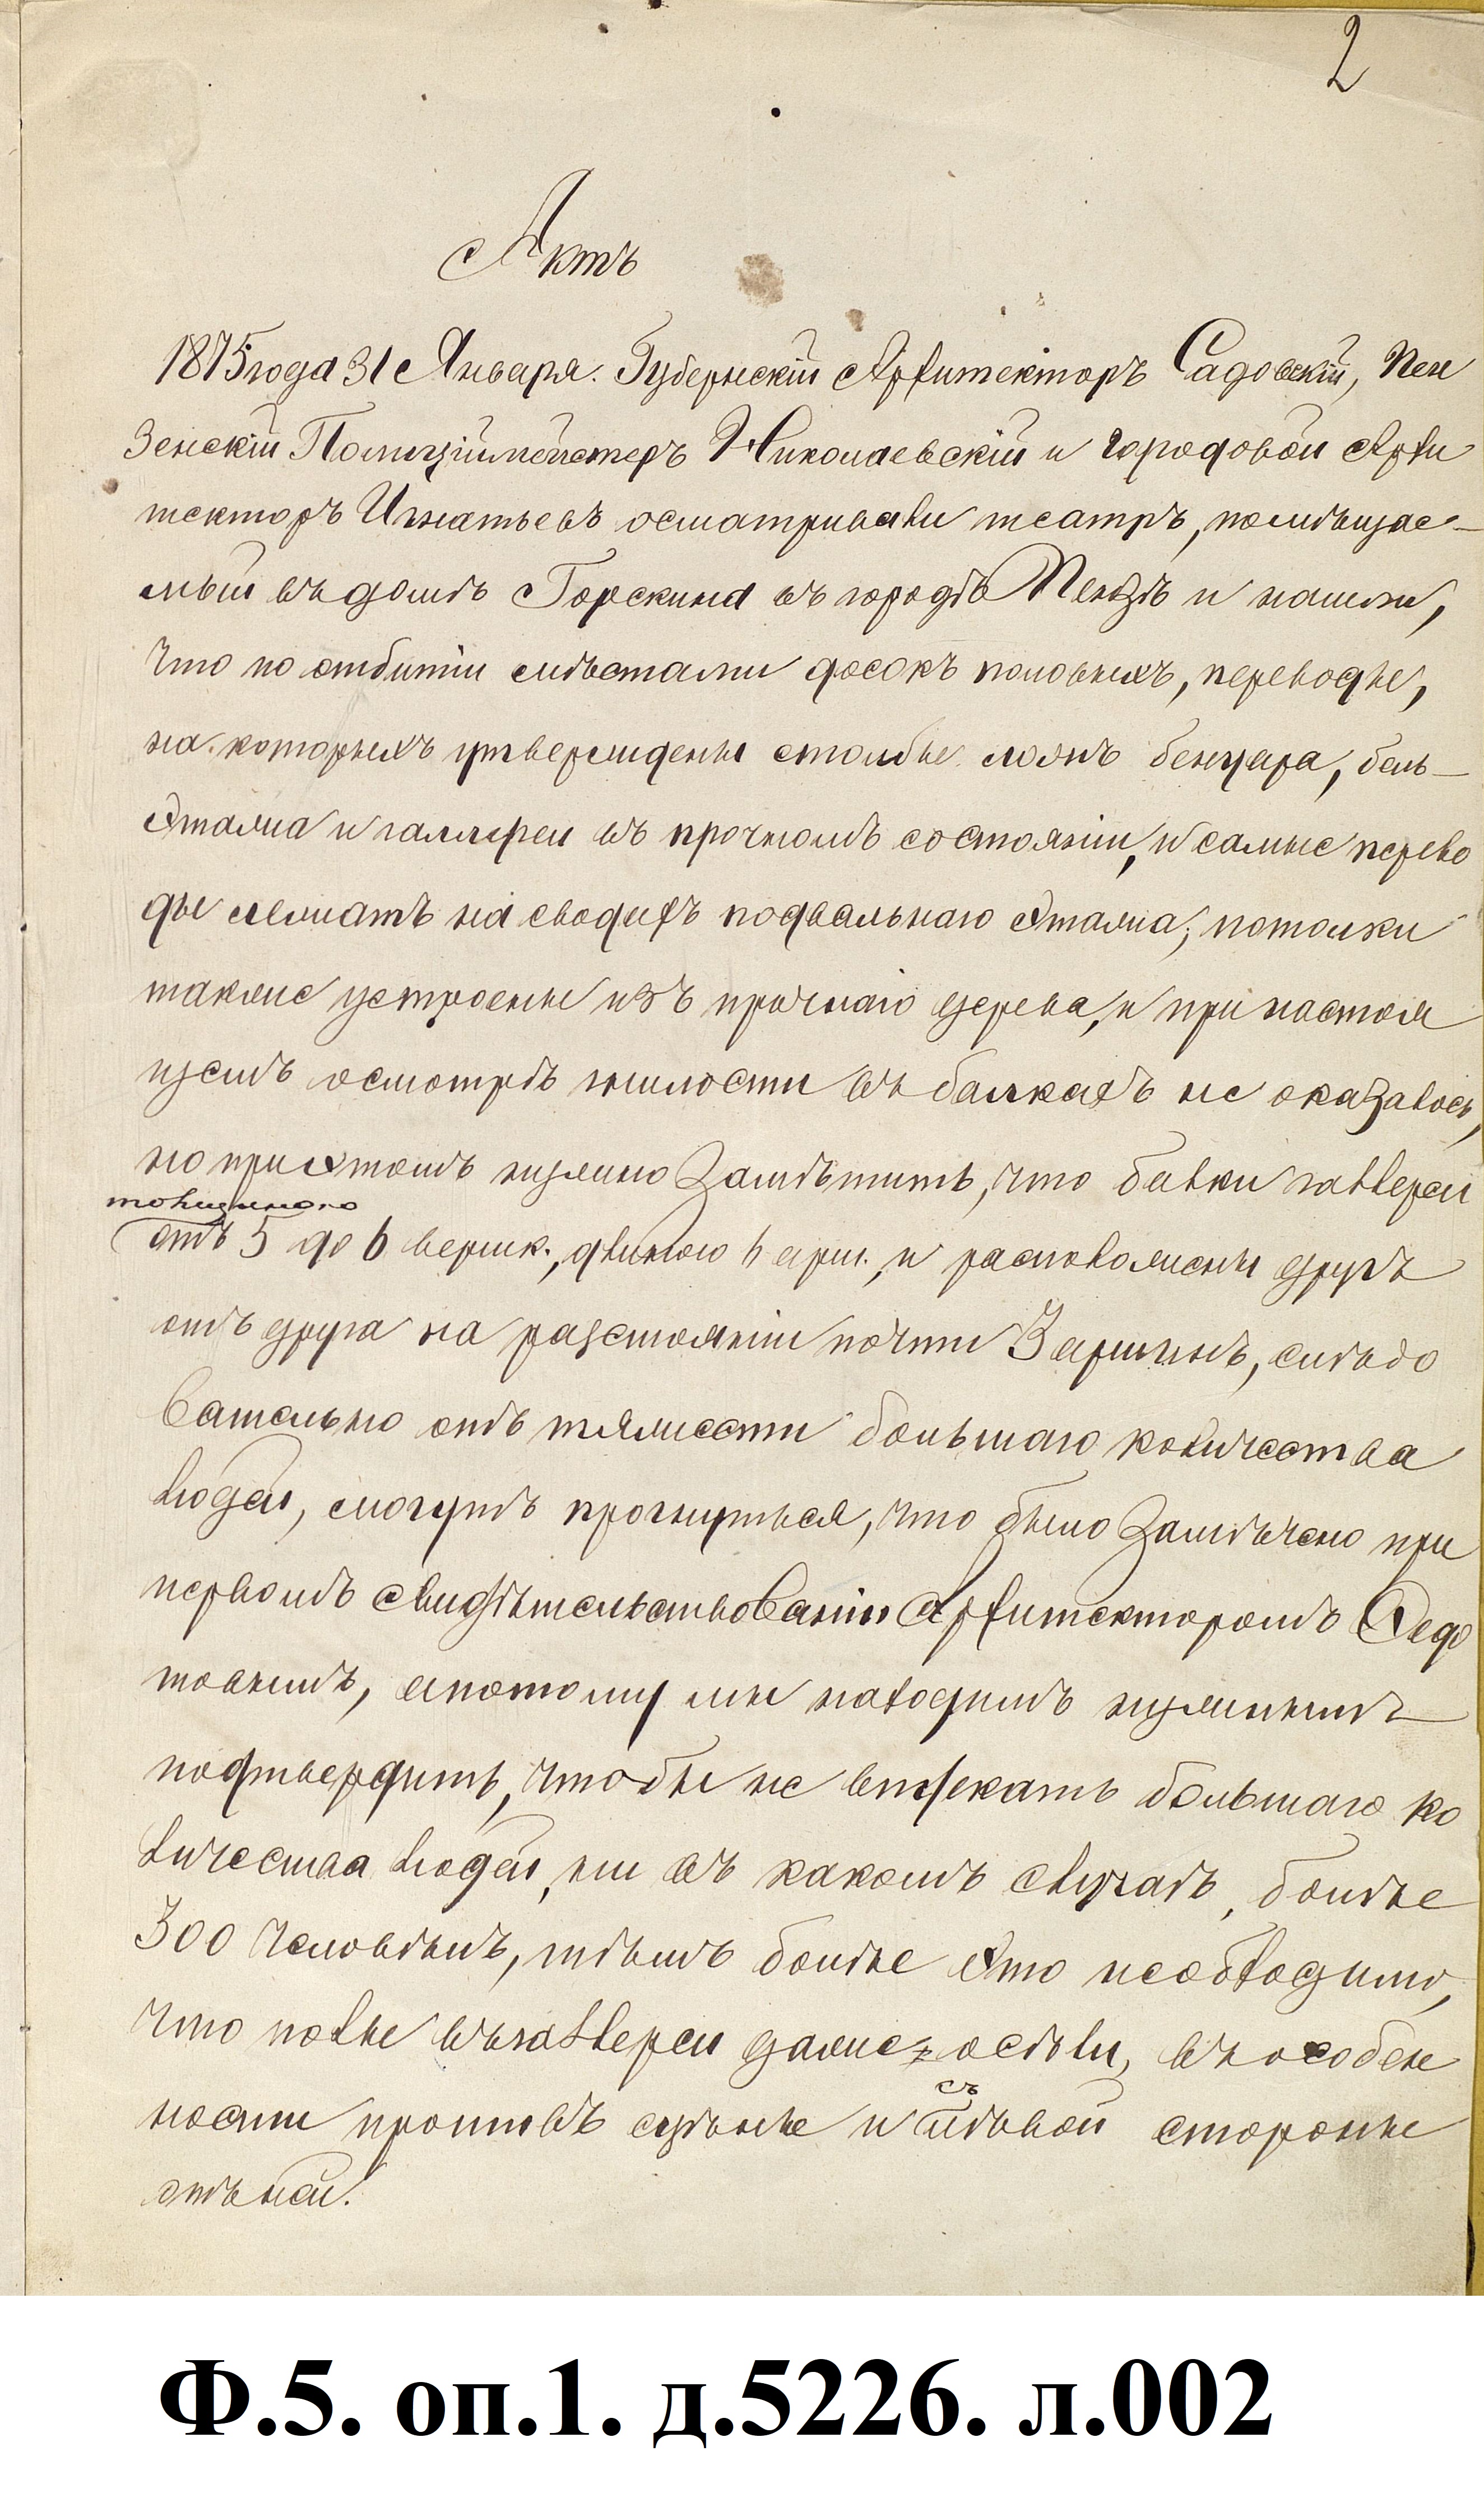 2
Актъ
1875 года 31 Января. Губернскій Архитекторъ Садовскій, Пен
зенскій Полиціймейстеръ Николаевскій и городовой Архи
текторъ Игнатьевъ осматривали театръ, помѣщае-
мый въ домѣ Горскина въ городѣ Пензѣ и нашли,
что по отбитіи мѣстами досокъ половыхъ, переводы,
на которыхъ утверждены столбы ложъ бенуара, бель-
этажа и галлереи въ прочномъ состояніи, и самые перево
ды лежатъ на сводахъ подвальнаго этажа; потолки
также устроены изъ прочнаго дерева, и при настоя
щемъ осмотрѣ гнилости въ балкахъ не оказалось,
но при этомъ нужно замѣтить, что балки галлереи
толщиною
отъ 5 до 6 вершк., длиною 6 арш., и расположены другъ
отъ друга на разстояніи почти 3 аршинъ, слѣдо
вательно отъ тяжести большаго количества
людей, могутъ прогнуться, что было замѣчено при
первомъ свидѣтельствованіи Архитекторомъ Федо
товымъ, а потому мы находимъ нужнымъ
подтвердить, чтобы не впускать большаго ко
личества людей, ни въ какомъ случаѣ, болѣе
300 человѣкъ, тѣмъ болѣе это необходимо,
что полы въ галлереи даже осѣли, въ особен
ности противъ сцѣны и
съ
лѣвой стороны
отъ ней.
Ф.5. оп.1. д.5226. л.002